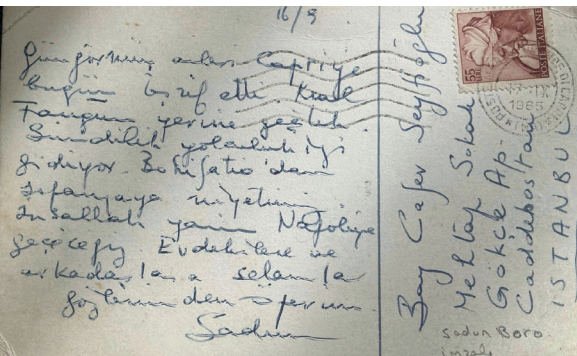 16/9
Capriye
bugün teşrif etti. Kral
Farugun yerine geçtik.
Şimdilik yolculuk iyi
gidiyor.
İspanyaya niyetim
İnşallah yarın Napoliye
geçeceğiz Evdekilere ve
arkadaşlara selamlar
gözlerinden öperim.
Sadun
Bay Cafer Seyfioğlu
Mehtap Sokak
Gökçe Ap.
Caddebostan
ISTANBUL
55
LIRE
POSTE ITALIANE
17-IX
1965
sadun Boro
imzalı